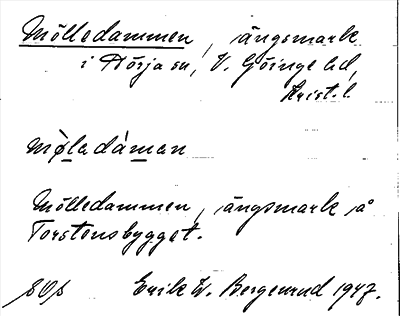 Mölledammen, ängsmark
i Nörja sn, V. Göinge hd,
Krist. l.
mø̀ladáman
Mölledammen, ängsmark på
Torstensbygget.
Erik W. Bergenrud 1947.